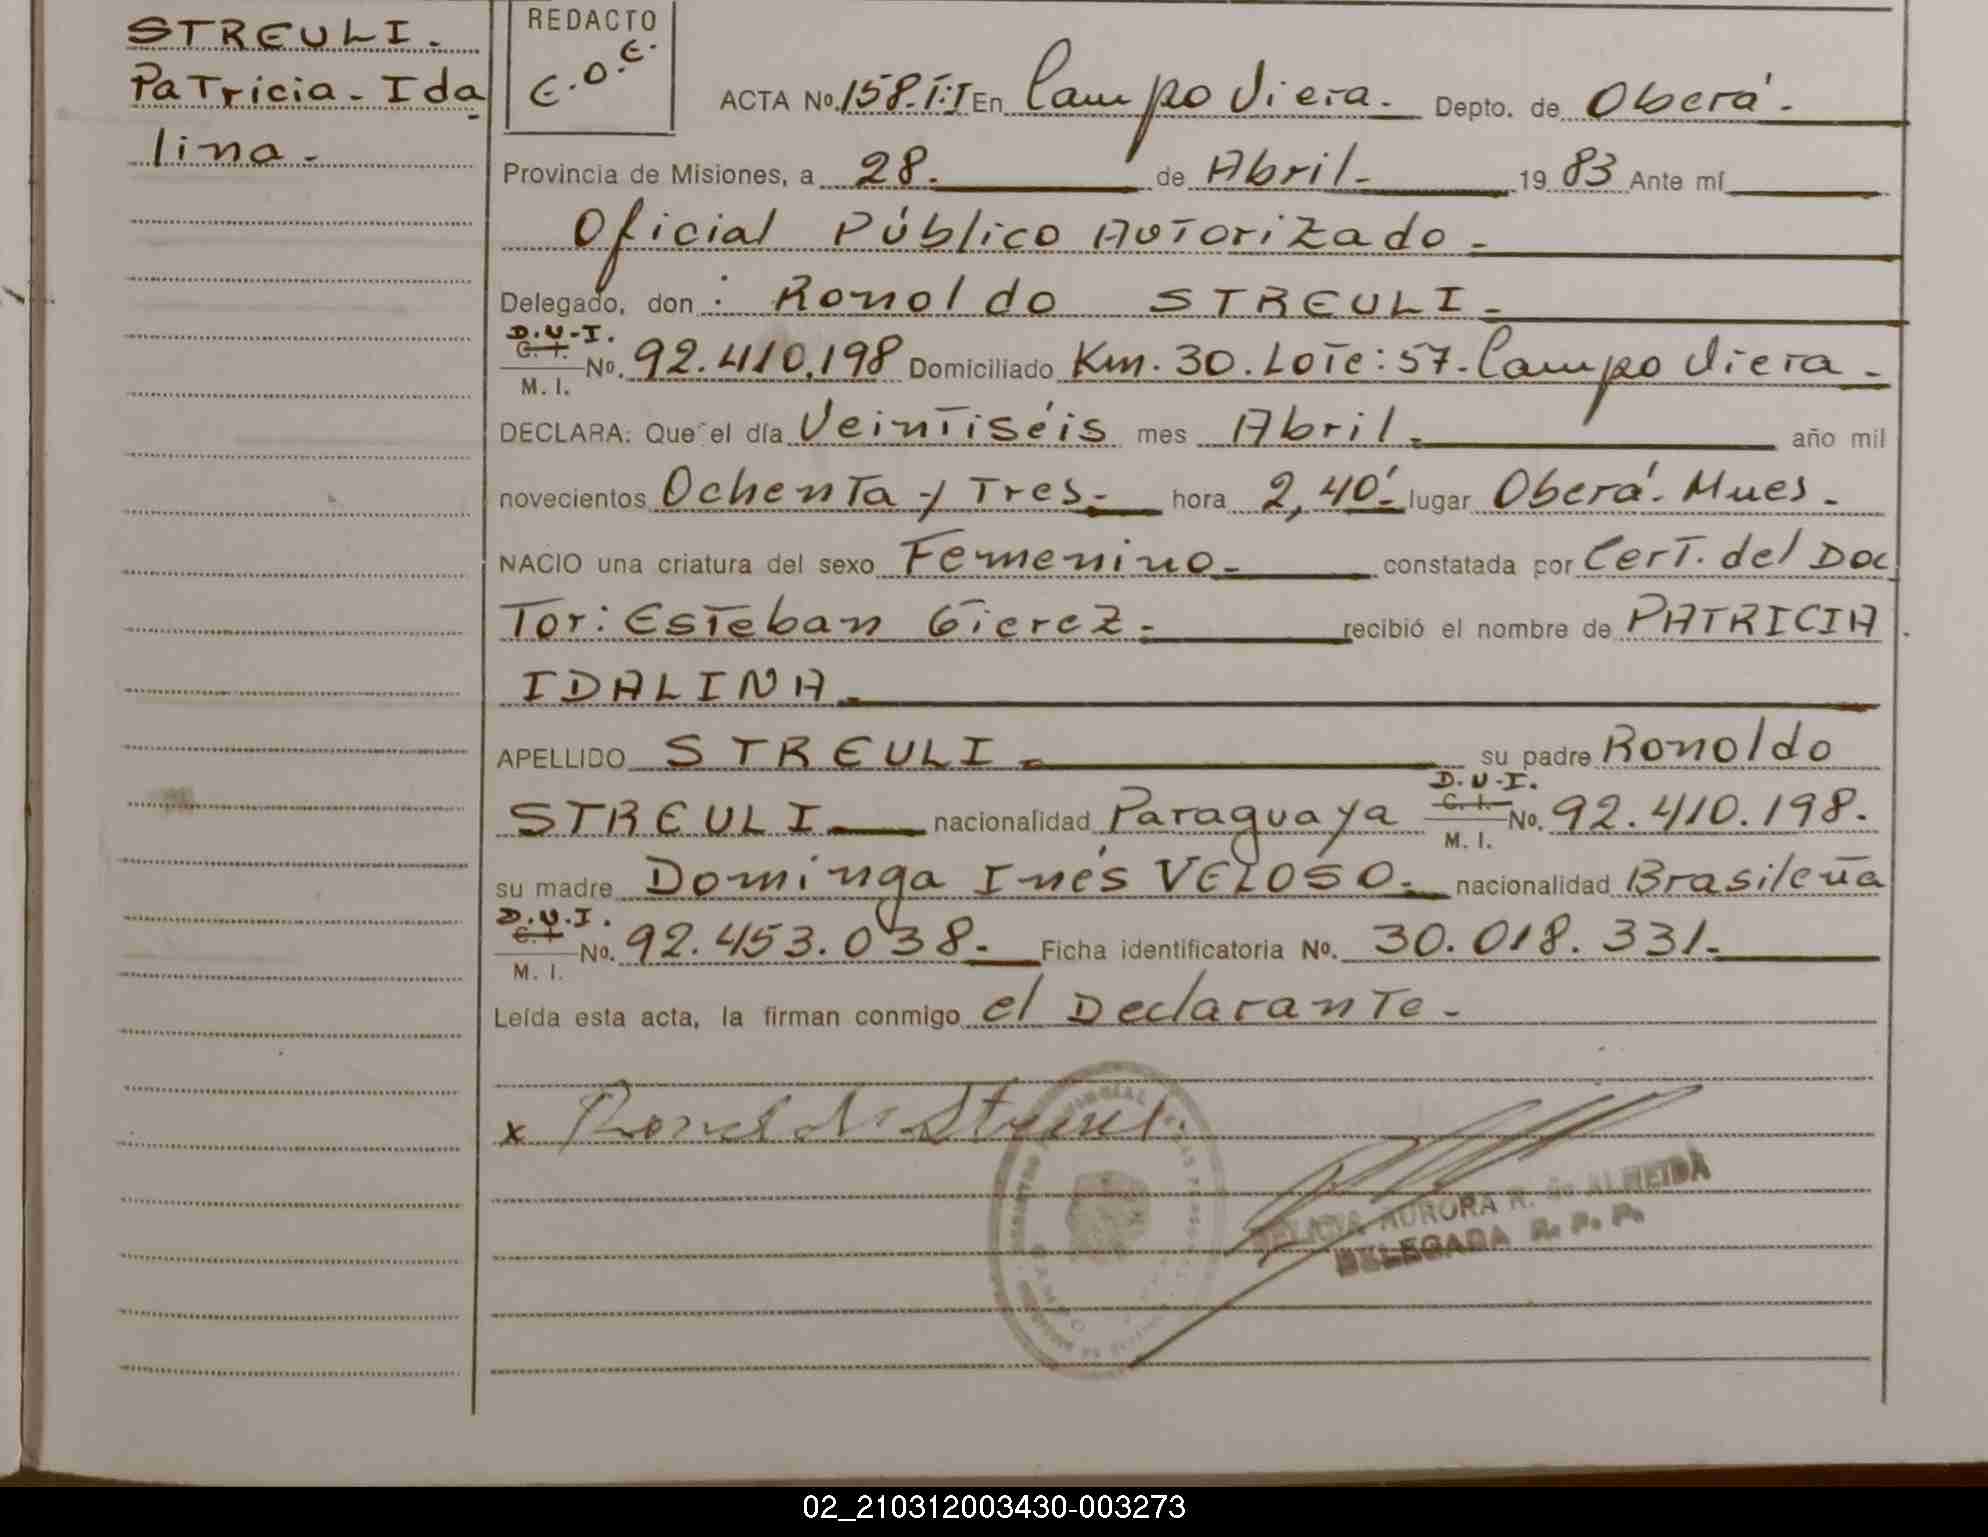 STREULI.
Patricia - Ida
lina -
REDACTO
E.O.E.
ACTA No. 158. T:I En Campo Viera. - Depto. de Oberá -
Provincia de Misiones, a 28. de Abril - 19 83 Ante mí
Oficial Público Autorizado -
Delegado, don : Ronoldo STREULI -
D.U.I.
C. I.
M. I.
No. 92.410.198 Domiciliado Km. 30. Lote: 57. Campo Viera -
DECLARA: Que el día Veintiséis mes Abril. año mil
novecientos Ochenta y Tres. - hora 2,40' - lugar Oberá. Mnes. -
NACIO una criatura del sexo Femenino. constatada por Cert. del Doc
tor: Esteban Gierez. recibió el nombre de PATRICIA
IDALINA
APELLIDO STREULI. su padre Ronoldo
STREULI nacionalidad Paraguaya D.U.I. C. I. M. I. No. 92.410.198.
su madre Dominga Inés VELOSO. nacionalidad Brasileña
D.U.I.
C. I.
M. I.
No. 92.453.038. Ficha identificatoria No. 30.018.331.
Leída esta acta, la firman conmigo el Declarante -
x Ronoldo Streuli
AURORA R. de ALMEIDA
DELEGADA R. P. P.
02_210312003430-003273